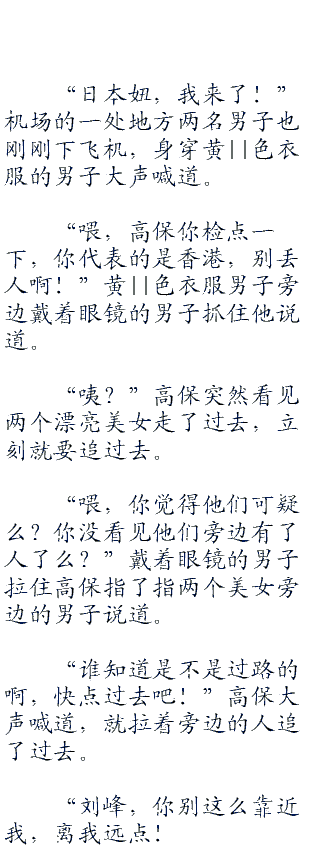 “日本妞，我来了！”
机场的一处地方两名男子也
刚刚下飞机，身穿黄||色衣
服的男子大声喊道。
“喂，高保你检点一
下，你代表的是香港，别丢
人啊！”黄||色衣服男子旁
边戴着眼镜的男子抓住他说
道。
“咦？”高保突然看见
两个漂亮美女走了过去，立
刻就要追过去。
“喂，你觉得他们可疑
么？你没看见他们旁边有了
人了么？”戴着眼镜的男子
拉住高保指了指两个美女旁
边的男子说道。
“谁知道是不是过路的
啊，快点过去吧！”高保大
声喊道，就拉着旁边的人追
了过去。
“刘峰，你别这么靠近
我，离我远点！